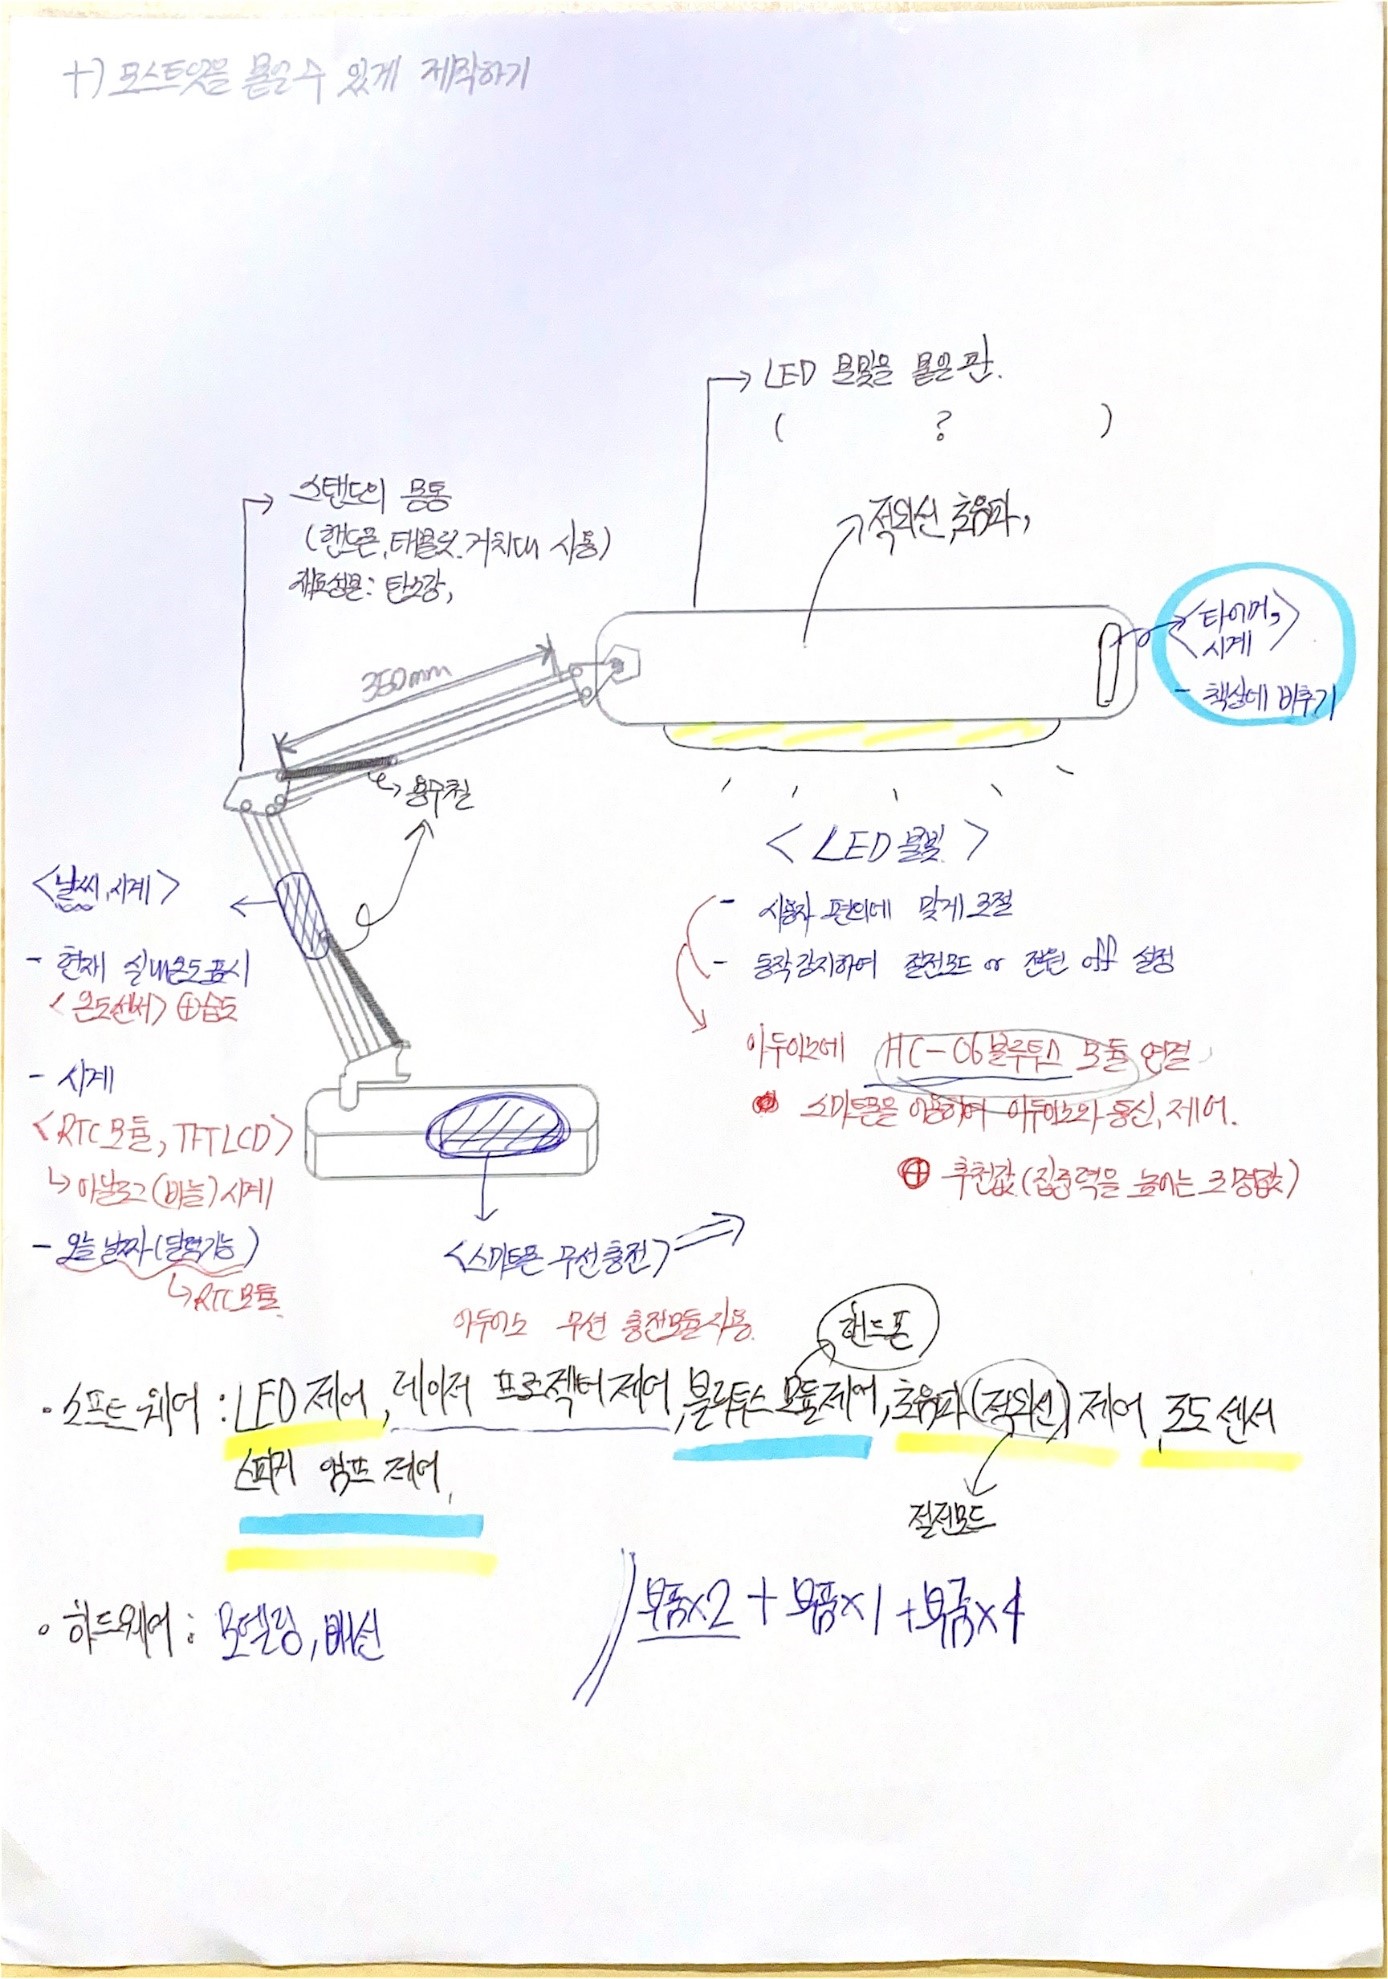 +) 포스트잇을 붙일 수 있게 제작하기
LED 불빛을 붙은 판.
( ? )
스탠드의 몸통
(핸드폰, 태블릿. 거치대 사용)
재료성분: 탄소강,
적외선, 초음파,
<타이머,
시계>
- 책상에 비추기
350mm
용수철
<LED 불빛>
- 사용자 편의에 맞게 조절
- 동작감지하여 절전모드 or 전원 off 설정
아두이노에 HC-06 블루투스 모듈 연결
스마트폰을 이용하여 아두이노와 통신, 제어.
⊕ 추천값(집중력을 높이는 조명값)
<날씨, 시계>
- 현재 실내온도 표시
<온도센서> ⊕습도
- 시계
<RTC 모듈, TFT LCD>
↳ 아날로그(바늘)시계
- 오늘 날짜(달력기능)
↳ RTC 모듈
<스마트폰 무선충전>
아두이노 무선 충전모듈사용.
핸드폰
· 소프트웨어 : LED 제어, 레이저 프로젝터 제어, 블루투스 모듈제어, 초음파(적외선) 제어, 조도센서
스피커 앰프 제어,
절전모드
· 하드웨어 : 모델링, 배선
부품×2 + 부품×1 + 부품×4